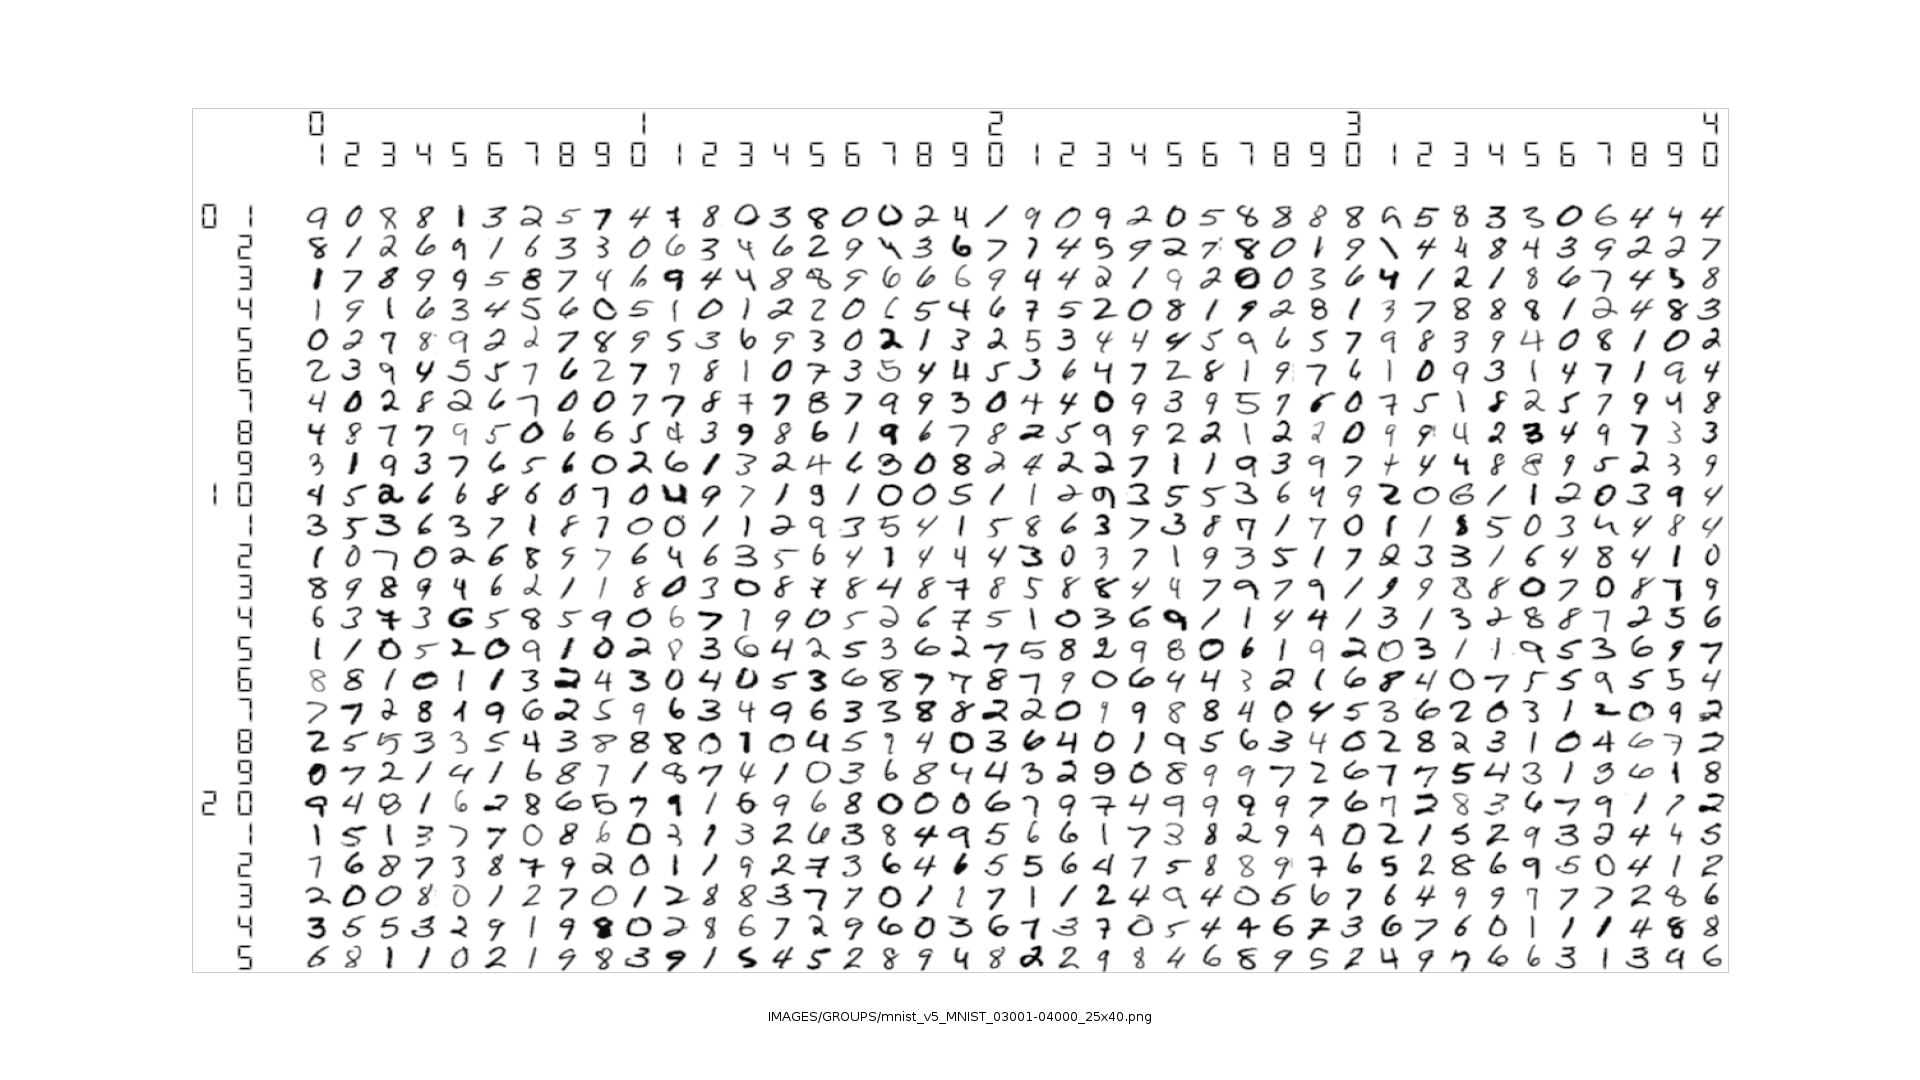 0 1 2 3 4
1 2 3 4 5 6 7 8 9 0 1 2 3 4 5 6 7 8 9 0 1 2 3 4 5 6 7 8 9 0 1 2 3 4 5 6 7 8 9 0
0 1 9 0 8 8 1 3 2 5 7 4 7 8 0 3 8 0 0 2 4 1 9 0 9 2 0 5 8 8 8 8 9 5 8 3 3 0 6 4 4 4
2 8 1 2 6 9 1 6 3 3 0 6 3 4 6 2 9 4 3 6 7 7 4 5 9 2 7 8 0 1 9 1 4 4 8 4 3 9 2 2 7
3 1 7 8 9 9 5 8 7 4 6 9 4 4 8 8 9 6 6 6 9 4 4 2 1 9 2 0 0 3 6 4 1 2 1 8 6 7 4 5 8
4 1 9 1 6 3 4 5 6 0 5 1 0 1 2 2 0 6 5 4 6 7 5 2 0 8 1 9 2 8 1 3 7 8 8 8 1 2 4 8 3
5 0 2 7 8 9 2 2 7 8 9 5 3 6 9 3 0 2 1 3 2 5 3 4 4 4 5 9 6 5 7 9 8 3 9 4 0 8 1 0 2
6 2 3 9 4 5 5 7 6 2 7 7 8 1 0 7 3 5 4 4 5 3 6 4 7 2 8 1 9 7 6 1 0 9 3 1 4 7 1 9 4
7 4 0 2 8 2 6 7 0 0 7 7 8 7 7 8 7 9 9 3 0 4 4 0 9 3 9 5 7 6 0 7 5 1 8 2 5 7 9 4 8
8 4 8 7 7 9 5 0 6 6 5 4 3 9 8 6 1 9 6 7 8 2 5 9 9 2 2 1 2 2 0 9 9 4 2 3 4 9 7 3 3
9 3 1 9 3 7 6 5 6 0 2 6 1 3 2 4 6 3 0 8 2 4 2 2 7 1 1 9 3 9 7 4 4 4 8 8 9 5 2 3 9
1 0 4 5 2 6 6 8 6 0 7 0 4 9 7 1 9 1 0 0 5 1 1 2 9 3 5 5 3 6 4 9 2 0 6 1 1 2 0 3 9 4
1 3 5 3 6 3 7 1 8 7 0 0 1 1 2 9 3 5 4 1 5 8 6 3 7 3 8 7 1 7 0 1 1 8 5 0 3 4 4 8 4
2 1 0 7 0 2 6 8 9 7 6 4 6 3 5 6 4 1 4 4 4 3 0 3 7 1 9 3 5 1 7 2 3 3 1 6 4 8 4 1 0
3 8 9 8 9 4 6 2 1 1 8 0 3 0 8 7 8 4 8 7 8 5 8 8 4 4 7 9 7 9 1 9 9 8 8 0 7 0 8 7 9
4 6 3 7 3 6 5 8 5 9 0 6 7 7 9 0 5 2 6 7 5 1 0 3 6 9 1 1 4 4 1 3 1 3 2 8 8 7 2 5 6
5 1 1 0 5 2 0 9 1 0 2 8 3 6 4 2 5 3 6 2 7 5 8 2 9 8 0 6 1 9 2 0 3 1 1 9 5 3 6 9 7
6 8 8 1 0 1 1 3 2 4 3 0 4 0 5 3 6 8 7 7 8 7 9 0 6 4 4 3 2 1 6 8 4 0 7 5 5 9 5 5 4
7 7 7 2 8 1 9 6 2 5 9 6 3 4 9 6 3 3 8 8 2 2 0 9 9 8 8 4 0 4 5 3 6 2 0 3 1 2 0 9 2
8 2 5 5 3 3 5 4 3 8 8 8 0 1 0 4 5 9 4 0 3 6 4 0 1 9 5 6 3 4 0 2 8 2 3 1 0 4 6 7 2
9 0 7 2 1 4 1 6 8 7 1 8 7 4 1 0 3 6 8 4 4 3 2 9 0 8 9 9 7 2 6 7 7 5 4 3 1 3 6 1 8
2 0 9 4 8 1 6 2 8 6 5 7 9 1 6 9 6 8 0 0 0 6 7 9 7 4 9 9 9 9 7 6 7 2 8 3 6 7 9 1 7 2
1 1 5 1 3 7 7 0 8 6 0 3 1 3 2 6 3 8 4 9 5 6 6 1 7 3 8 2 9 9 0 2 1 5 2 9 3 2 4 4 5
2 7 6 8 7 3 8 7 9 2 0 1 1 9 2 7 3 6 4 6 5 5 6 4 7 5 8 8 9 7 6 5 2 8 6 9 5 0 4 1 2
3 2 0 0 8 0 1 2 7 0 1 2 8 8 3 7 7 0 1 1 7 1 1 2 4 9 4 0 5 6 7 6 4 9 9 7 7 7 2 8 6
4 3 5 5 3 2 9 1 9 8 0 2 8 6 7 2 9 6 0 3 6 7 3 7 0 5 4 4 6 7 3 6 7 6 0 1 1 1 4 8 8
5 6 8 1 1 0 2 1 9 8 3 9 1 5 4 5 2 8 9 4 8 2 2 9 8 4 6 8 9 5 2 4 9 7 6 6 3 1 3 9 6
IMAGES/GROUPS/mnist_v5_MNIST_03001-04000_25x40.png